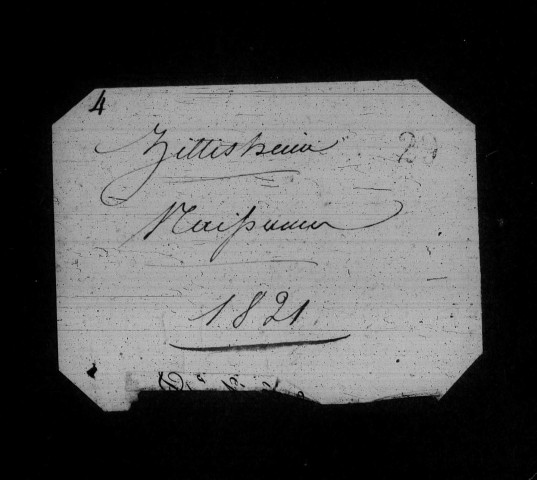 4
Zittisheim
Naissances
1821